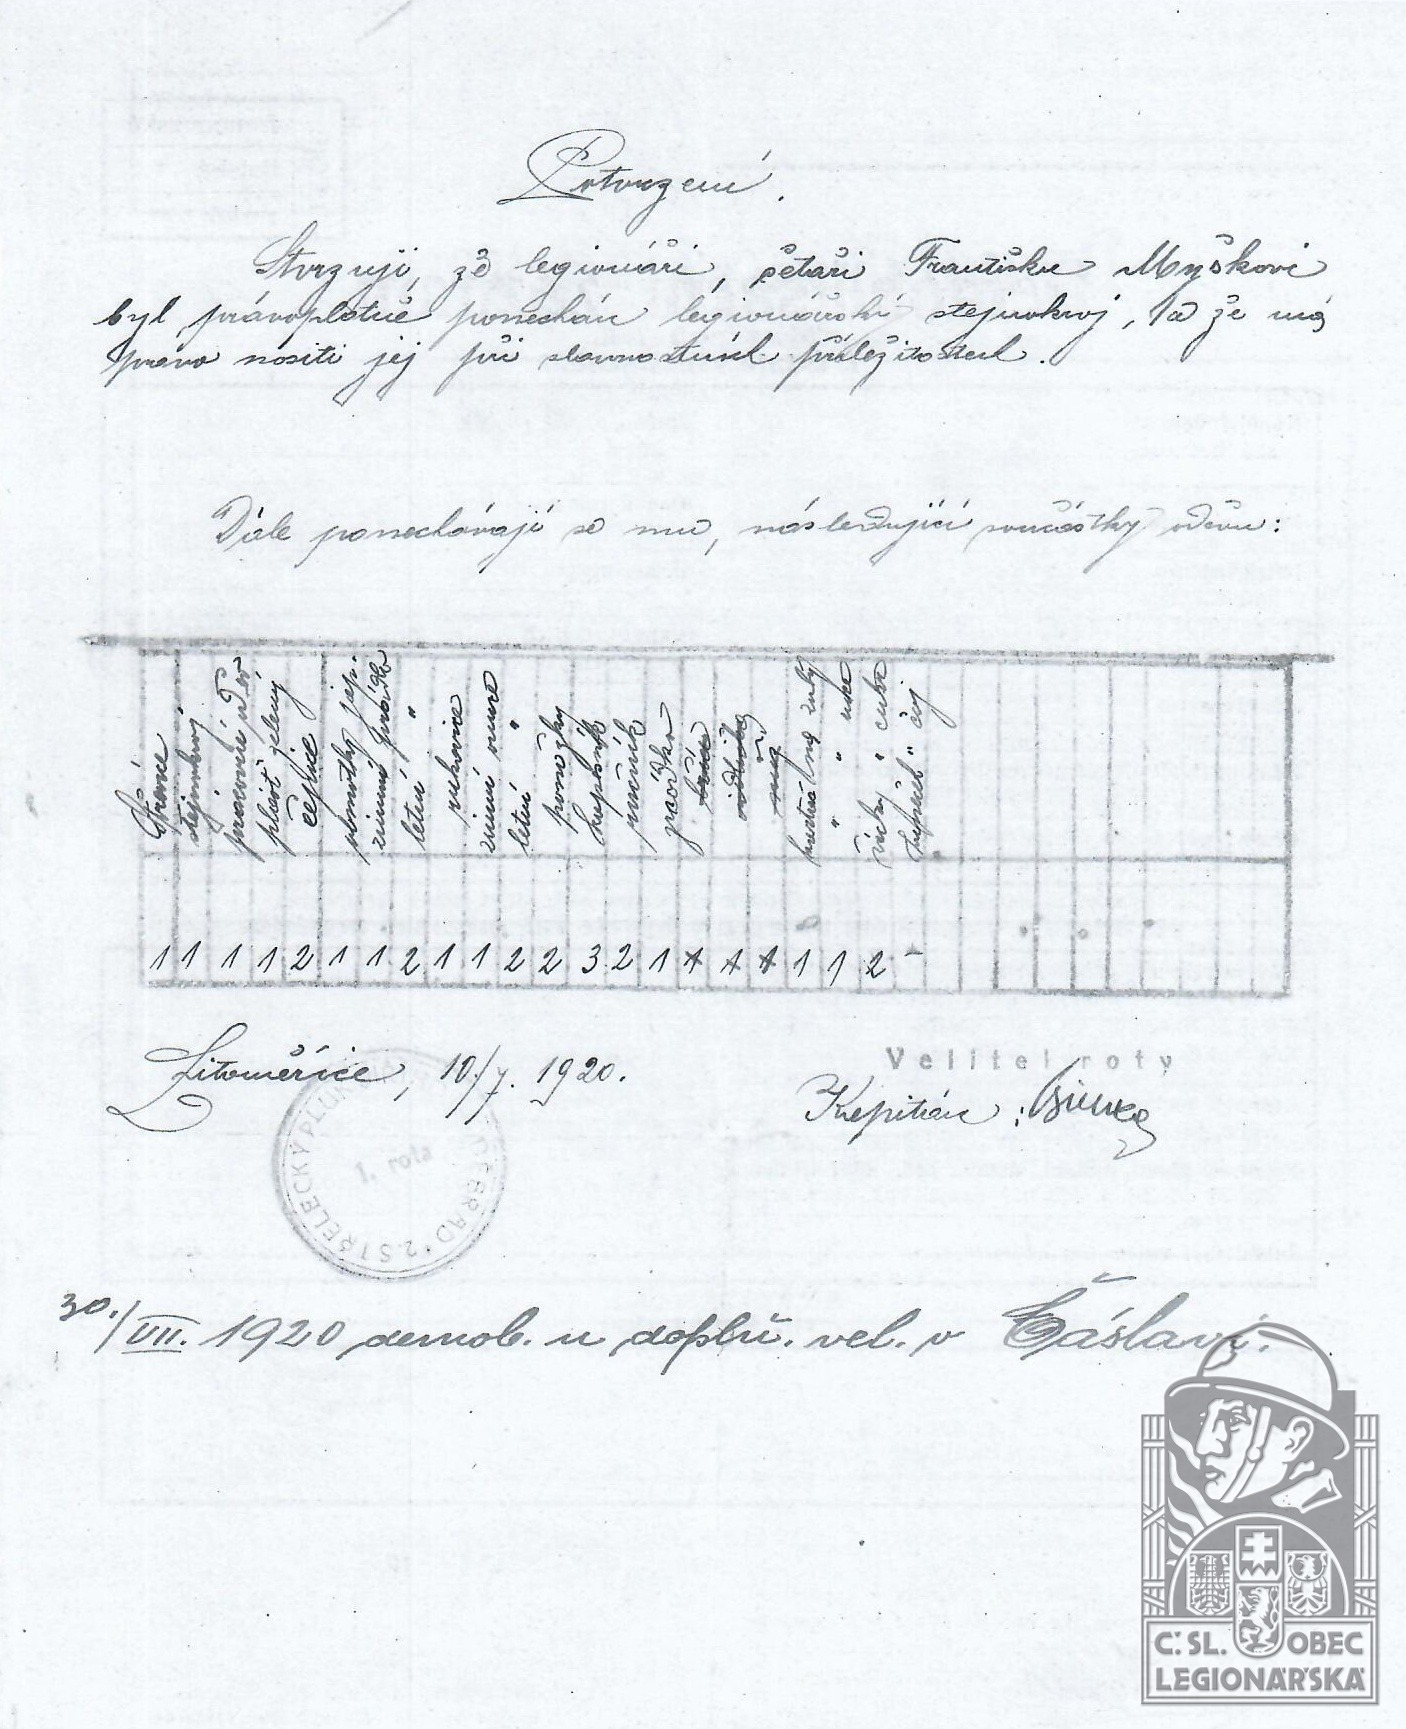 Potvrzení.
Stvrzuji, že legionáři, četaři Františku Myškovi
byl právoplatně ponechán legionářskí stejnokroj, a že má
pravo nositi jej při slavnostních příležitostech.
Dále ponechávají se mu, následující součástky oděvu:
stejnokroj
pracovní oděv
plášť zelený
čepice
zimní prádlo
letní "
rukavice
zimní onuce
letní "
ponožky
kapesník
ručník
1 1 1 1 2 1 1 2 1 1 2 2 3 2 1 1 1 1 1 1 2 -
Litoměřice, 10./7. 1920.
Velitel roty
Kapitán:
2. STŘELECKÝ PLUK
1. rota
30./VII. 1920 demob. u doplň. vel. v Čáslavi.
Č.SL. OBEC
LEGIONÁŘSKÁ